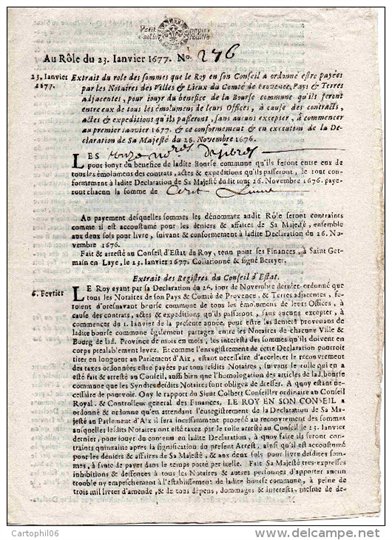 Au Rôle du 23. Ianvier 1677. No. 276
23. Ianvier 1677.
Extrait du role des sommes que le Roy en son Conseil a ordonné estre payées
par les Notaires des Villes & Lieux du Comté de Provence, Pays & Terres
adjacentes, pour jouyr du benefice de la Bourse commune qu'ils feront
entre eux de tous les émolumens de leurs Offices, à cause des contracts,
actes & expeditions qu'ils passeront, sans aucun excepter, à commencer
au premier Ianvier 1677. & ce conformement & en execution de la De-
claration de Sa Majesté du 26. Novembre 1676.
LES
pour jouyr du benefice de ladite Bourse commune qu'ils feront entre eux de
tous les émolumens des contracts, actes & expeditions qu'ils passeront, le tout con-
formement à ladite Declaration de Sa Majesté dudit jour 26. Novembre 1676. paye-
ront chacun la somme de Cent
Au payement desquelles sommes les dénommez audit Rôle seront contraints
comme il est accoustumé pour les deniers & affaires de Sa Majesté, ensemble
aux deux sols pour livre, suivant & conformement à ladite Declaration du 26. No-
vembre 1676.
Fait & arresté au Conseil d'Estat du Roy, tenu pour ses Finances, à Saint Germain
en Laye, le 23. Ianvier 1677. Collationné & signé Berryer.
Extrait des Registres du Conseil d'Estat.
6. Fevrier
LE Roy ayant par sa Declaration du 26. jour de Novembre dernier, ordonné que
tous les Notaires de son Pays & Comté de Provence, & Terres adjacentes, fe-
roient d'oresnavant bourse commune de tous les émolumens de leurs Offices, à
cause des contracts, actes & expeditions qu'ils passeront, sans aucun excepter, à com-
mencer du 1. Ianvier de la presente année, pour estre tout le produit de ladite
bourse commune également partagé entre les Notaires de chaque Ville &
Bourg de la Province de mois en mois, les necessitez des sommes qu'ils doivent en
corps préalablement levées. Et comme l'enregistrement de cette Declaration pourroit
tirer en longueur au Parlement d'Aix, estant necessaire d'accelerer le recouvrement
des taxes ordonnées estre payées par lesdits Notaires, suivant le rolle qui en a
esté fait & arresté au Conseil, aussi bien que l'homologation des articles de lad. bourse
commune que les Syndics desdits Notaires sont obligez de dresser. A quoy estant ne-
cessaire de pourvoir. Oüy le rapport du Sieur Colbert Conseiller ordinaire au Conseil
Royal, & Controlleur general des Finances, LE ROY EN SON CONSEIL a
ordonné & ordonne qu'en attendant l'enregistrement de la Declaration de Sa Ma-
jesté au Parlement d'Aix il sera incessamment procedé au recouvrement des sommes
auquelles lesdits Notaires ont esté taxez par le rolle arresté au Conseil le 23. Ianvier
dernier, pour jouyr du contenu en ladite Declaration, à quoy faire ils seront con-
traints quinzaine aprés la signification du present Arrest, ainsi qu'il est accoustumé
pour les deniers & affaires de Sa Majesté, mesme aux deux sols pour livre desdites som-
mes, à faute de payer dans le temps porté par icelle. Fait Sa Majesté tres-expresses
inhibitions & deffenses à tous les Notaires & autres personnes d'apporter aucun
trouble ny empeschement à l'establissement de ladite bourse commune, à peine de
trois mil livres d'amende, & de tous dépens, dommages & interests, mesme de des-
Cartophil06
Cartophil06